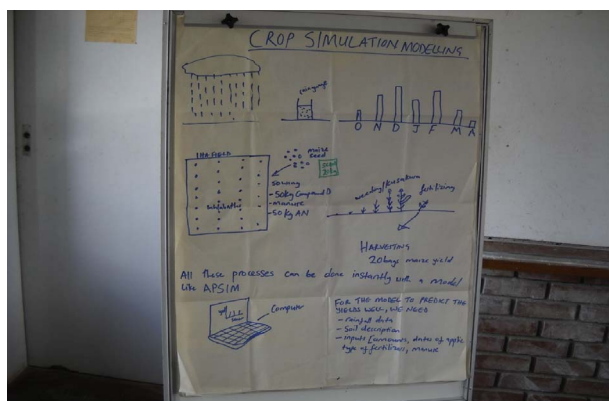 CROP SIMULATION MODELLING
O N D J F M A
1HA FIELD
maize
seed
sowing
- 50kg Compound D
- manure
- 50kg AN
weeding/kusakura
fertilizing
HARVESTING
20 bags maize yield
All these processes can be done instantly with a model
like APSIM
Computer
FOR THE MODEL TO PREDICT THE
YIELDS WELL, WE NEED
- rainfall data
- Soil description
- inputs [amounts, dates of applic
type of fertilisers, manure